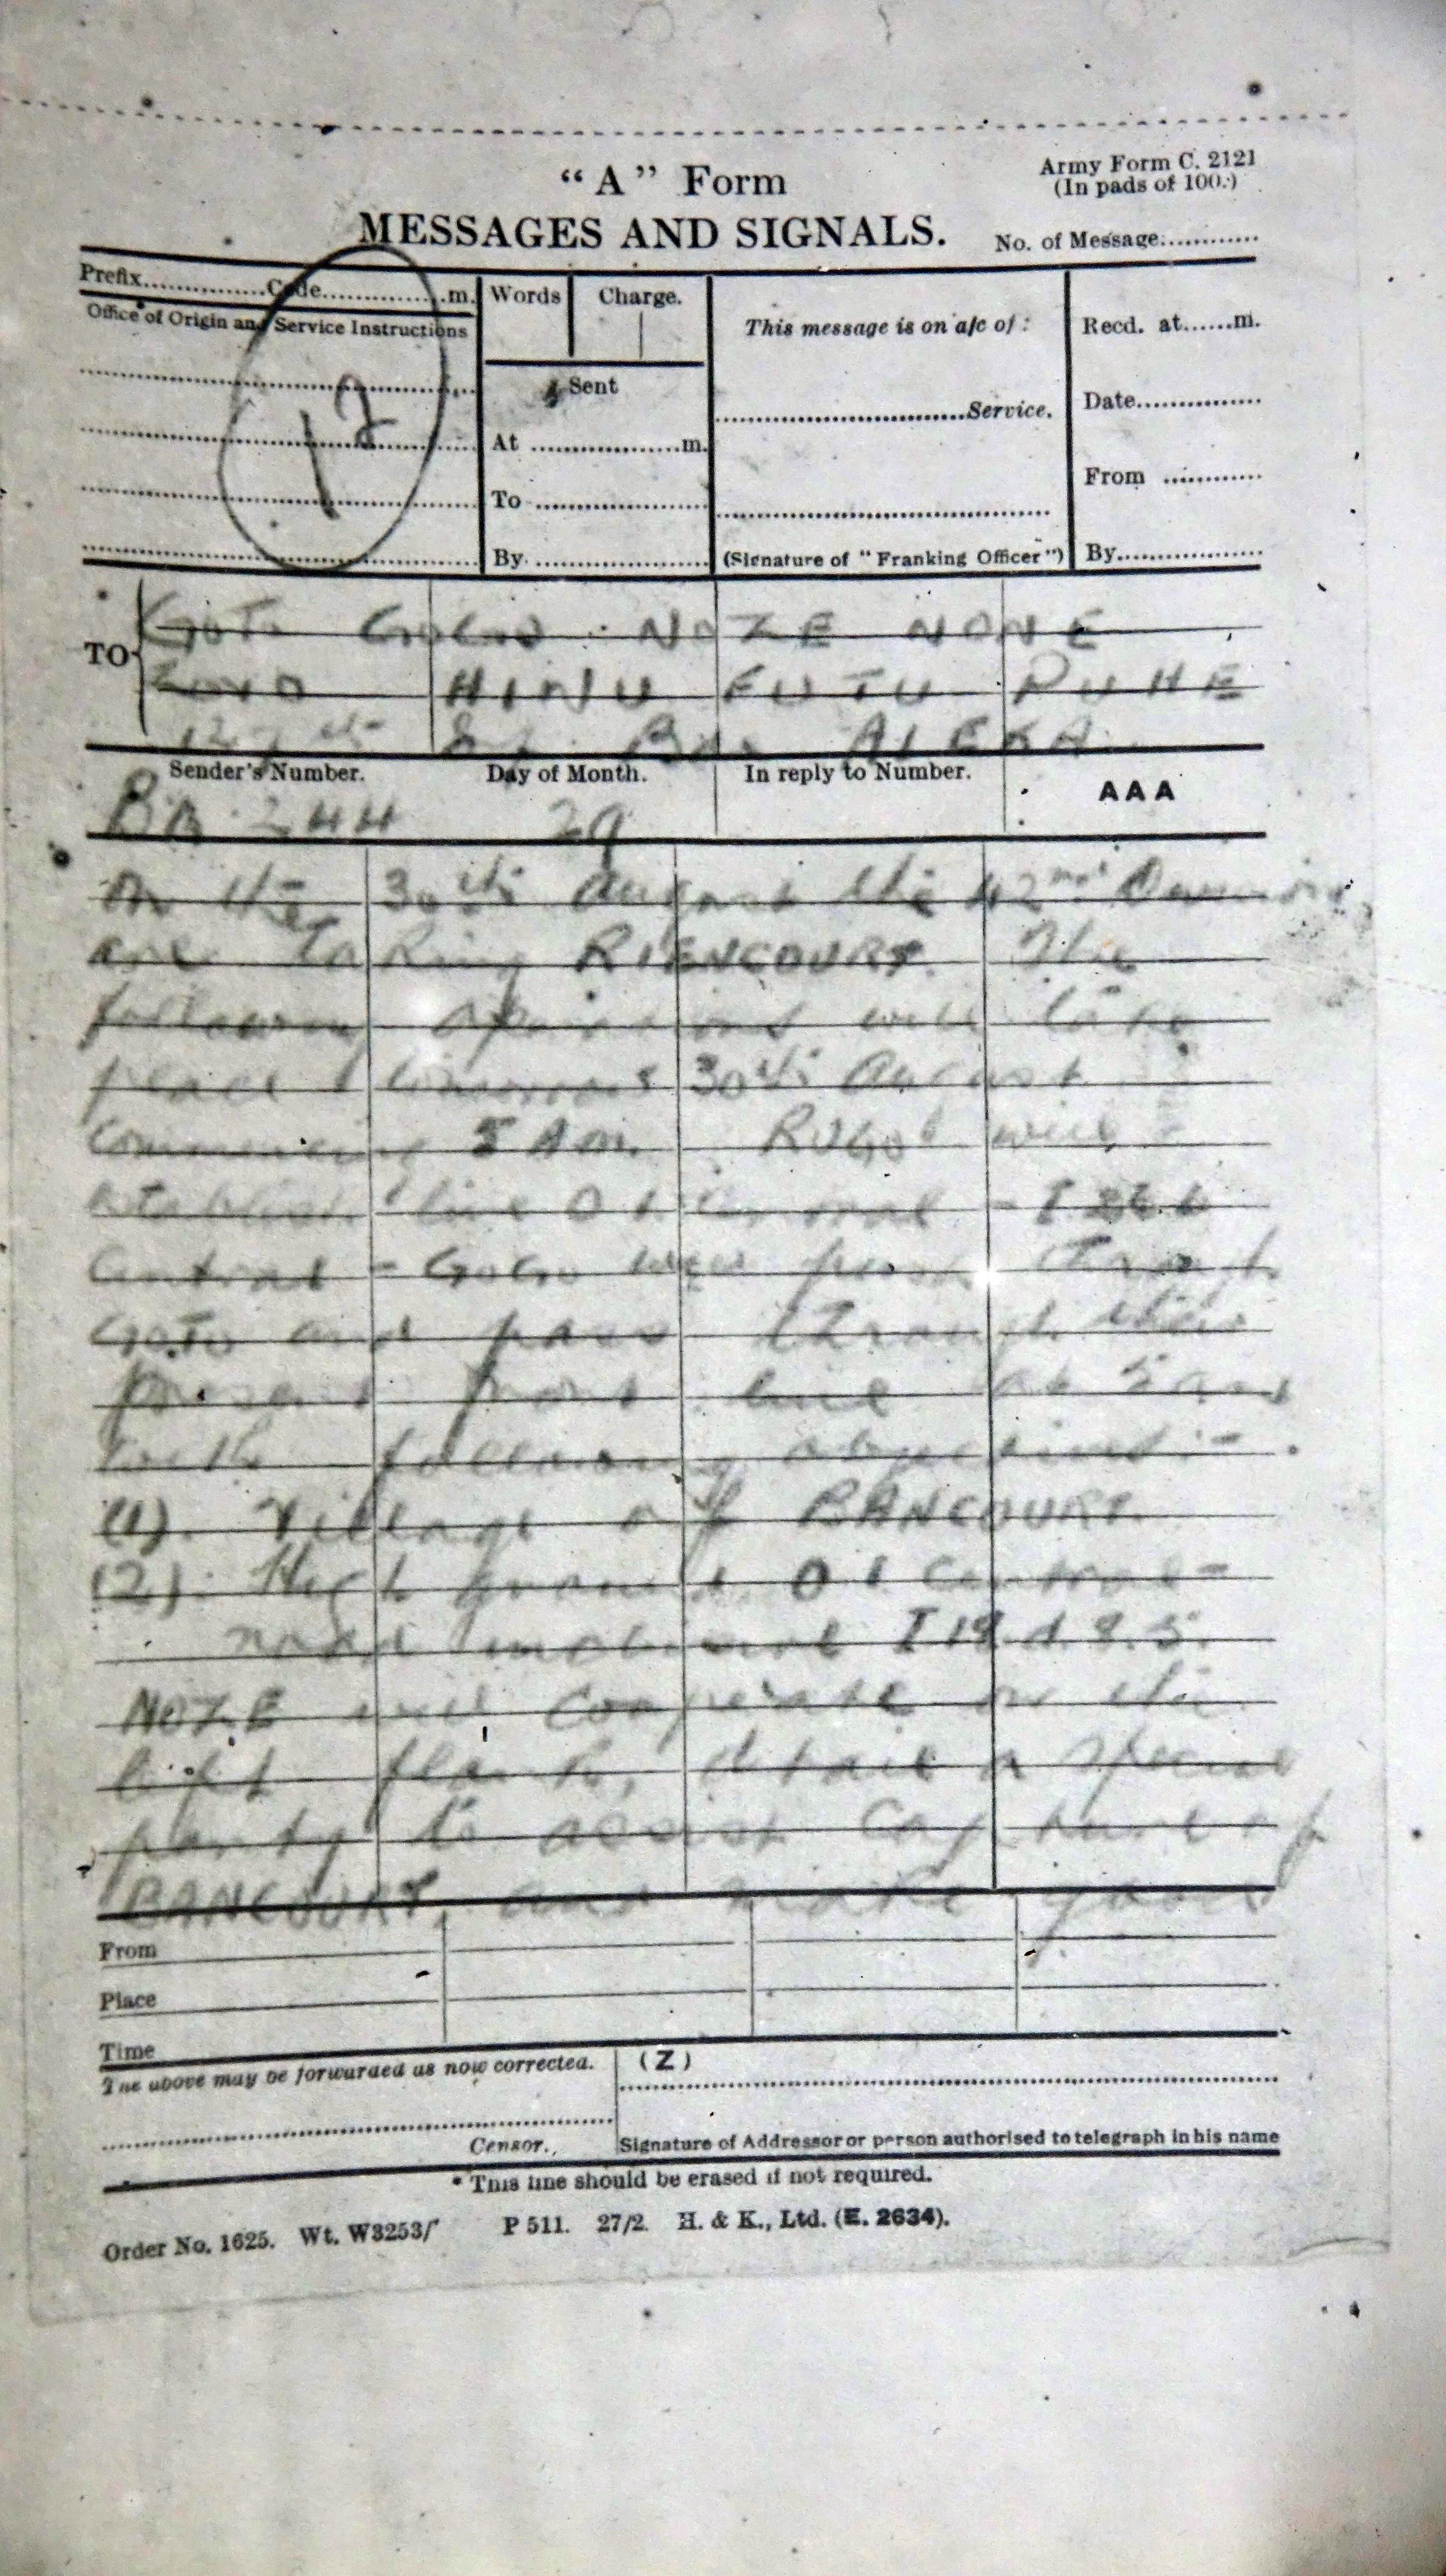 "A" Form
Army Form C. 2121
(In pads of 100.)
MESSAGES AND SIGNALS.
No. of Message............
Prefix...............Code...............m.
Words
Charge.
This message is on a/c of :
Recd. at......m.
Office of Origin and Service Instructions
12
Sent
........................Service.
Date...............
At ..................m.
From ............
To ....................
By ....................
(Signature of "Franking Officer")
By..................
TO
GOTO GOLO NOZE NONE
HINU FUTU RUHE
Sender's Number.
Day of Month.
In reply to Number.
AAA
244
29
On the 30th August the 42nd
are taking RIENCOURT. The
following operations will take
place tomorrow 30th August
commencing 5 Am. will
establish line O 1 central - I
central - GOLO will pass through
GOTO and pass through their
present front line at 5 am
with following objectives :-
(1). Village of BANCOURT.
(2). High ground O 1 central -
road inclusive I 18 d. 8. 5.
NOZE will cooperate on the
left flank, detail a special
party to assist capture of
BANCOURT, and make good
From
Place
Time
The above may be forwarded as now corrected.
(Z)
Censor.
Signature of Addressor or person authorised to telegraph in his name
* This line should be erased if not required.
Order No. 1625. Wt. W3253/ P 511. 27/2. H. & K., Ltd. (E. 2634).